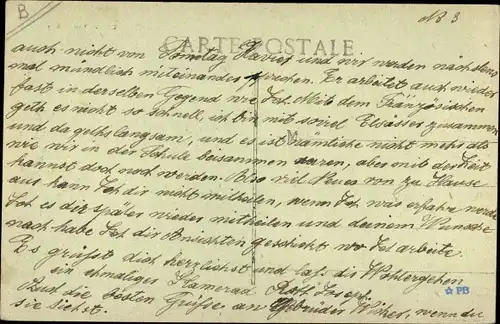 B
No 3
CARTE POSTALE
auch nicht von Sonntag und wir werden nächstens
mal mündlich miteinander sprechen. Er arbeitet auch wieder
fast in derselben Gegend wie Ich. Mit dem Französischen
geht es nicht so schnell, ich bin mit soviel Elsässer zusammen
und da gehts langsam, und es ist nämliche nicht mehr als
wie wir in der Schule beisammen waren, aber mit der Zeit
kannst doch noch werden. Also viel Neues von zu Hause
aus kann Ich dir nicht mitheilen, wenn Ich was erfahre werde
Ich es dir später wieder mitheilen und deinem Wunsche
nach habe Ich dir Ansichten geschickt wo Ich arbeite.
Es grüsst dich herzlichst und auf Wohlergehen
ein ehmaliges Kamerad Joseph.
Auch die besten Grüsse an Gebrüder wenn du
sie siehst.
PB